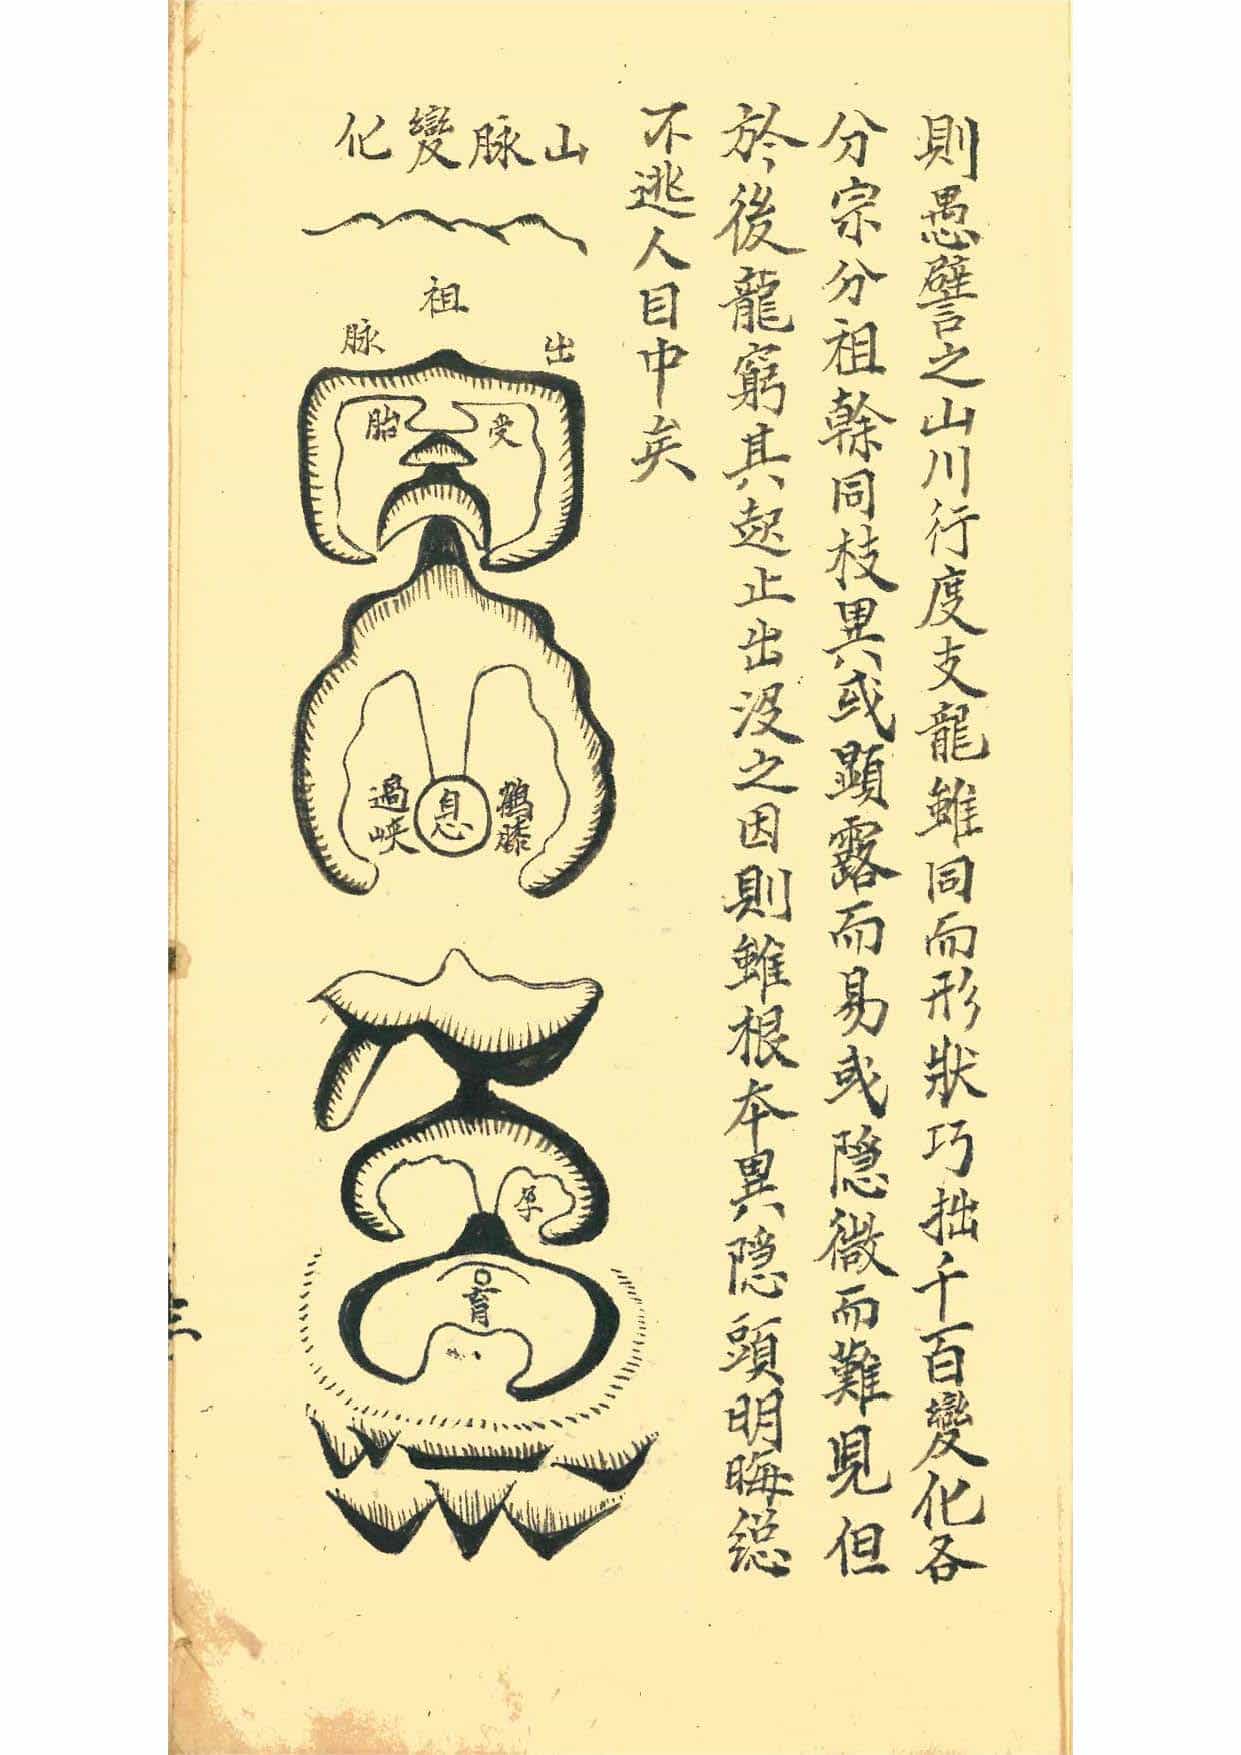 則愚譬之山川行度支龍雖同而形狀巧拙千百變化各
分宗分祖榦同枝異或顯露而易或隱微而難見但
於後龍窮其起止出没之因則雖根本異隱頭明晦縂
不逃人目中矣
山脉變化
祖
出脉
受胎
鶴膝
息
過峽
孕
育
三